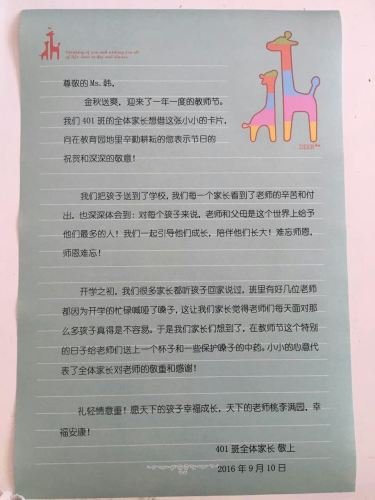 尊敬的Ms. 韩,
金秋送爽，迎来了一年一度的教师节。
我们401班的全体家长想借这张小小的卡片，
向在教育园地里辛勤耕耘的您表示节日的
祝贺和深深的敬意！
DEER
我们把孩子送到了学校，我们每一个家长看到了老师的辛苦和付
出，也深深体会到：对每个孩子来说，老师和父母是这个世界上给予
他们最多的人！我们一起引导他们成长，陪伴他们长大！难忘师恩，
师恩难忘！
开学之初，我们很多家长都听孩子回家说过，班里有好几位老师
都因为开学的忙碌喊哑了嗓子，这让我们家长觉得老师们每天面对那
么多孩子真得是不容易。于是我们家长们想到了，在教师节这个特别
的日子给老师们送上一个杯子和一些保护嗓子的中药。小小的心意代
表了全体家长对老师的敬重和感谢！
礼轻情意重！愿天下的孩子幸福成长，天下的老师桃李满园，幸
福安康！
401班全体家长 敬上
2016年9月10日